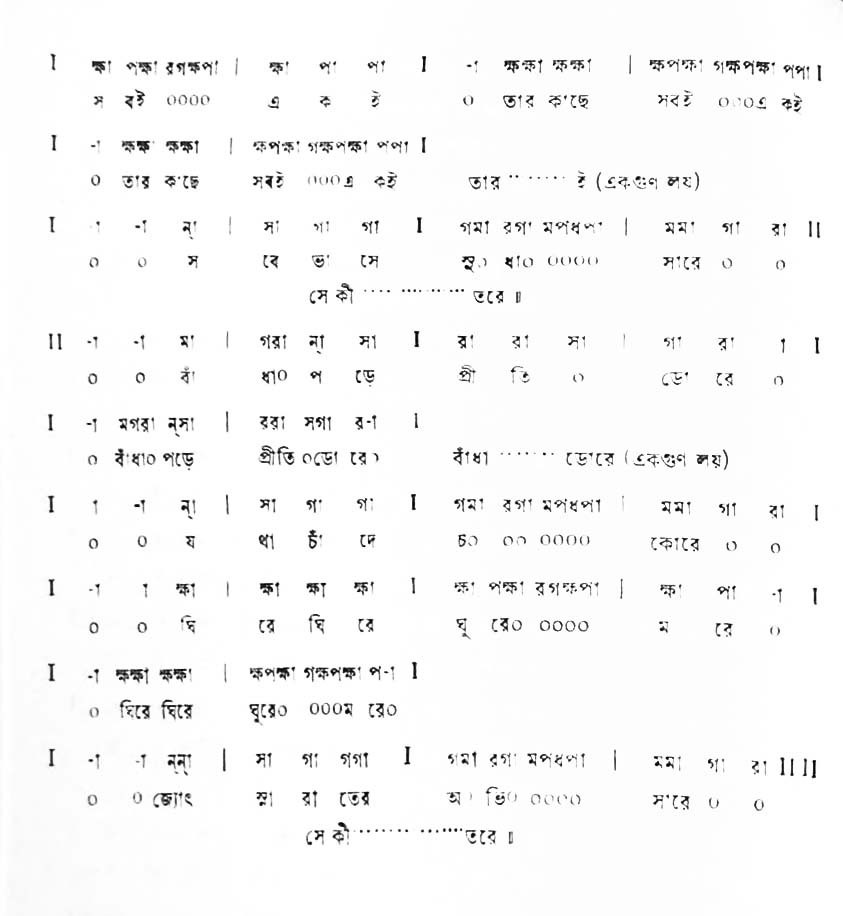 I ক্ষা পক্ষা রগক্ষপা | ক্ষা পা পা I -া ক্ষক্ষা ক্ষক্ষা | ক্ষপক্ষা গক্ষপক্ষা পপা I
স বই 0000 এ ক ই 0 তার কাছে সবই 000এ কই
I -া ক্ষক্ষা ক্ষক্ষা | ক্ষপক্ষা গক্ষপক্ষা পপা I
0 তার কাছে সবই 000এ কই তার ········ ই (একগুণ লয়)
I -া -া ন্া | সা গা গা I গমা রগা মপধপা | মমা গা রা II
0 0 স বে ভা সে সু0 ধা0 0000 সারে 0 0
সে কী ···· ············ তরে ॥
II -া -া মা | গরা ন্া সা I রা রা সা | গা রা া I
0 0 বাঁ ধা0 প ড়ে প্রী তি 0 ডো রে 0
I -া মগরা ন্সা | ররা সগা র-া I
0 বাঁধা0 পড়ে প্রীতি 0ডো রে0 বাঁধা ········ ডোরে (একগুণ লয়)
I া -া ন্া | সা গা গা I গমা রগা মপধপা | মমা গা রা I
0 0 য থা চাঁ দে চ0 00 0000 কোরে 0 0
I -া া ক্ষা | ক্ষা ক্ষা ক্ষা I ক্ষা পক্ষা রগক্ষপা | ক্ষা পা -া I
0 0 ঘি রে ঘি রে ঘু রে0 0000 ম রে 0
I -া ক্ষক্ষা ক্ষক্ষা | ক্ষপক্ষা গক্ষপক্ষা প-া I
0 ঘিরে ঘিরে ঘুরে0 000ম রে0
I -া -া ন্ন্া | সা গা গগা I গমা রগা মপধপা | মমা গা রা II II
0 0 জ্যোৎ স্না রা তের অ0 ভি0 0000 সারে 0 0
সে কী ········ ······· তরে ॥